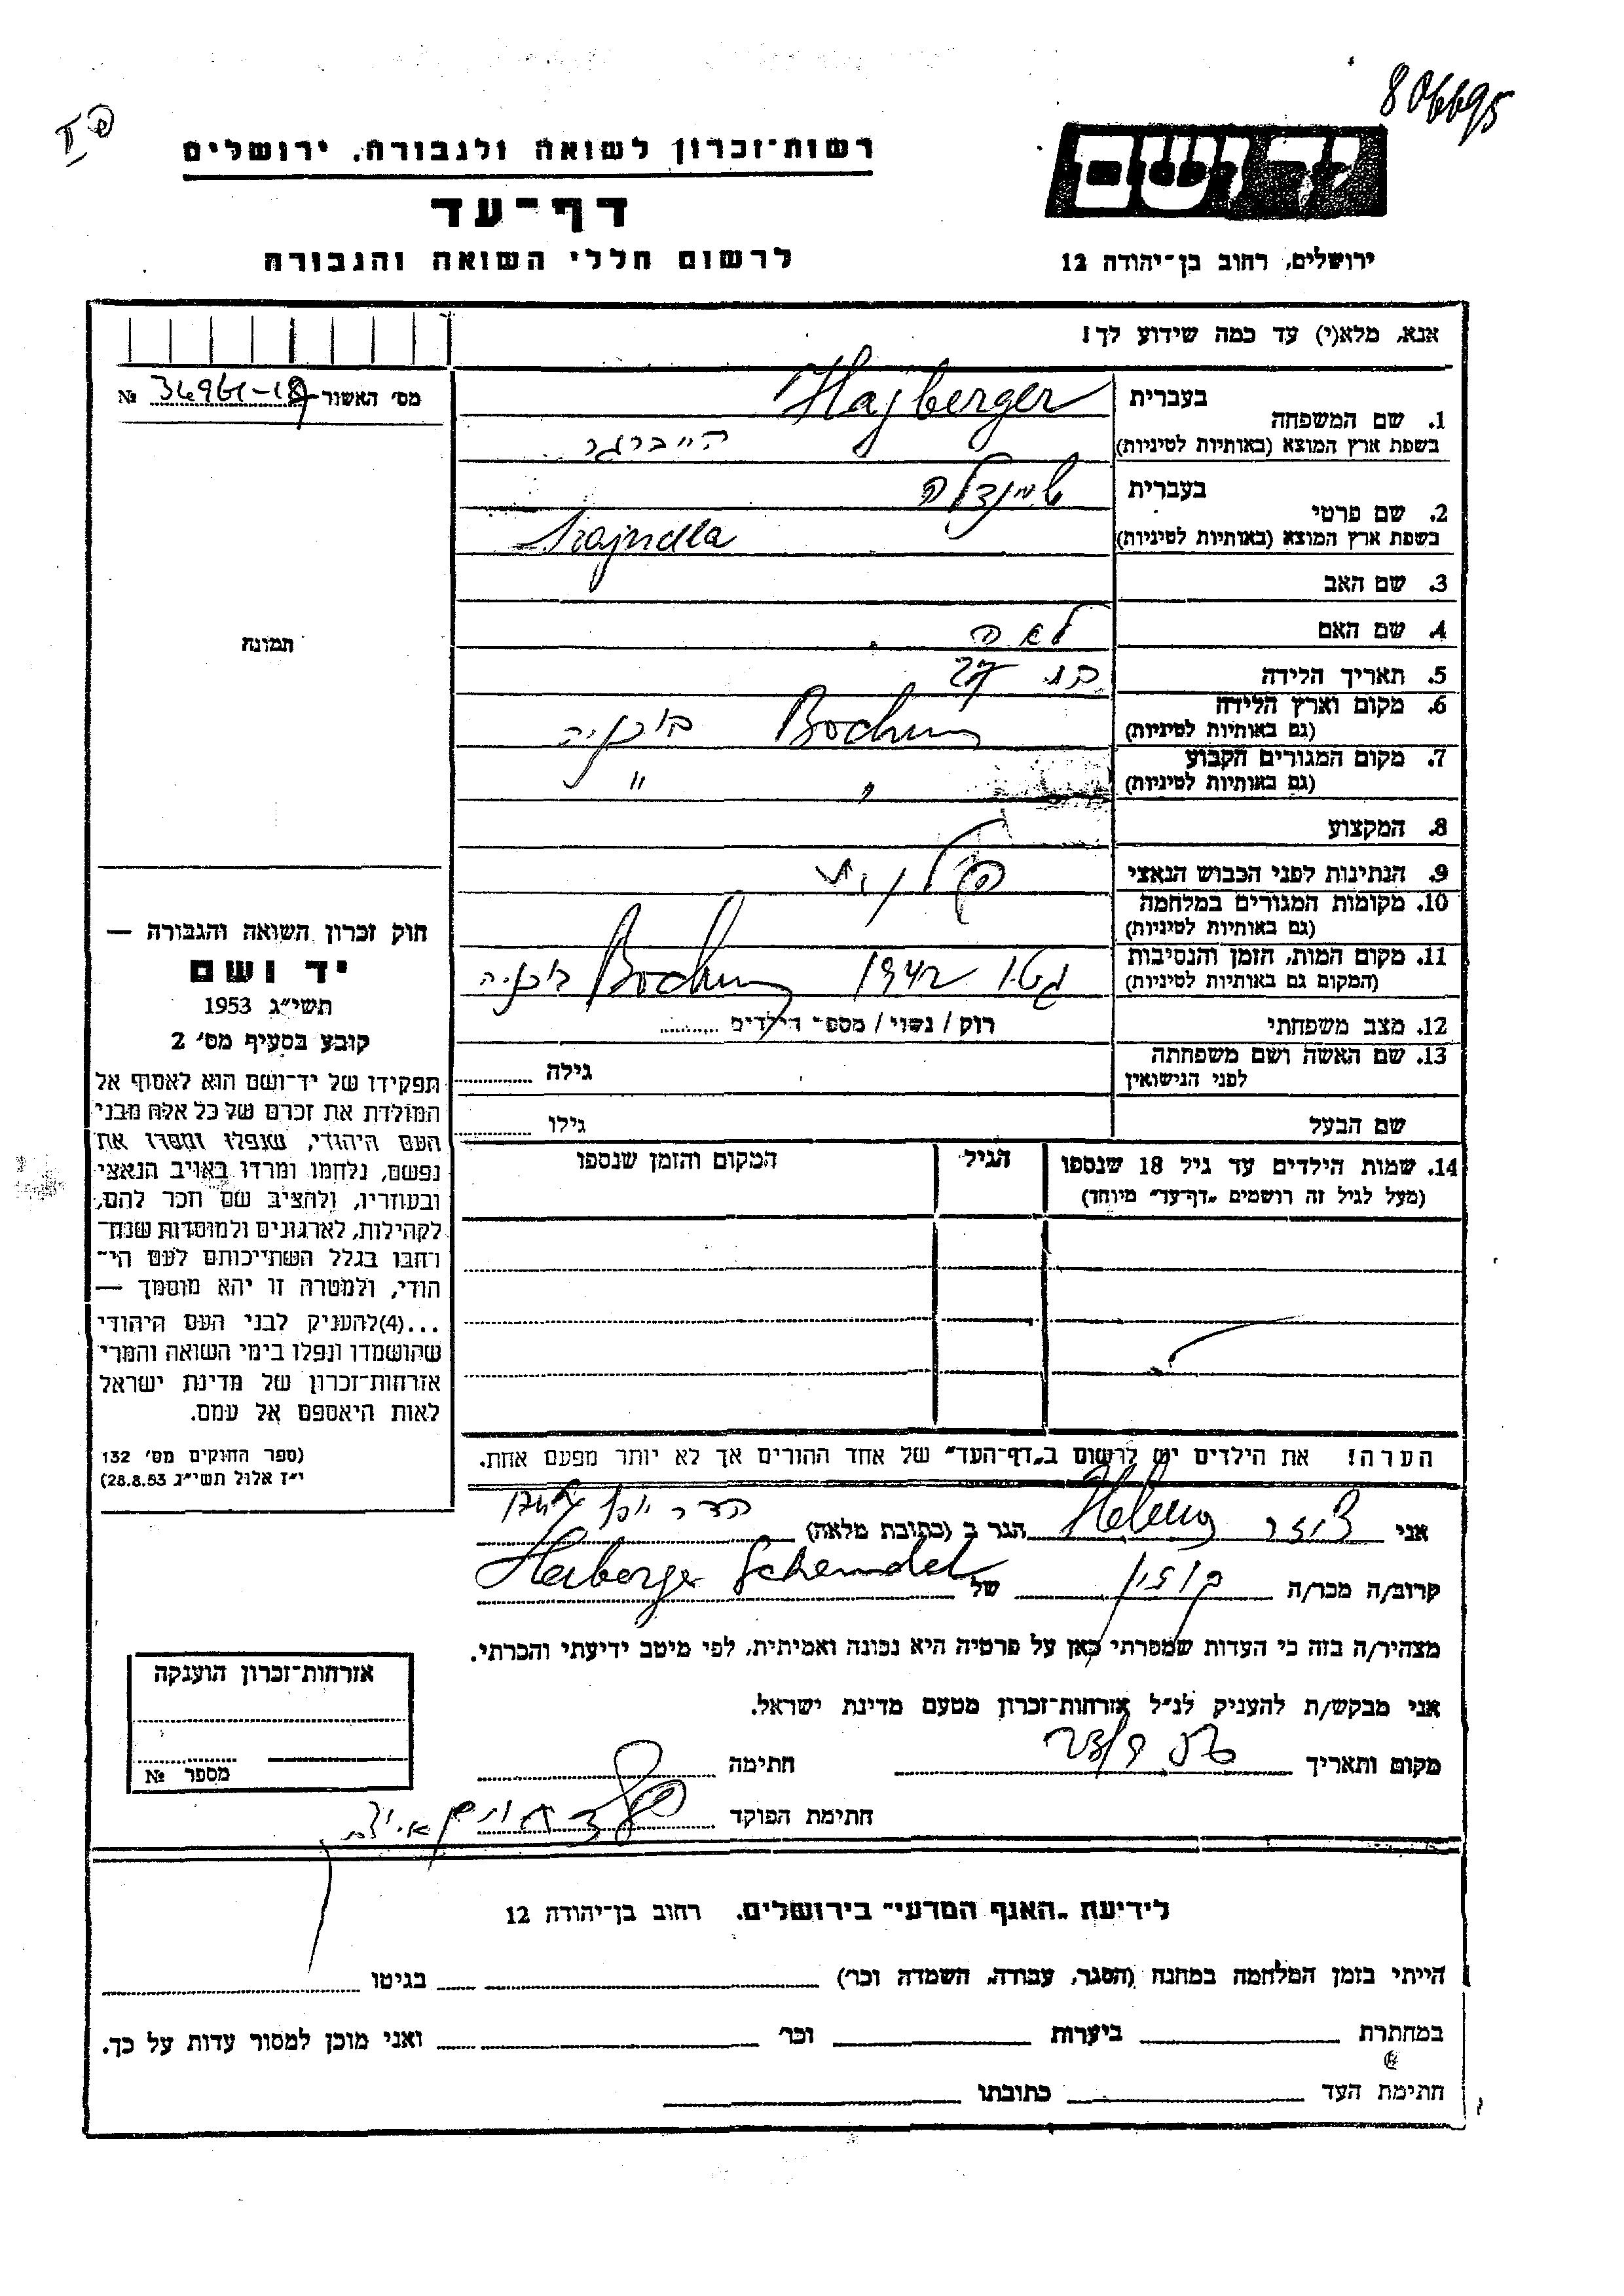 806695
יד ושם
רשות־זכרון לשואה ולגבורה, ירושלים
דף־עד
לרשום חללי השואה והגבורה
ירושלים, רחוב בן־יהודה 12
אנא, מלא(י) עד כמה שידוע לך!
מס׳ האשור №
1. שם המשפחה
בעברית Hajberger
בשפת ארץ המוצא (באותיות לטיניות) הייברגר
2. שם פרטי
בעברית שיינדלה
בשפת ארץ המוצא (באותיות לטיניות) Szajndla
3. שם האב
4. שם האם לאה
5. תאריך הלידה בת
6. מקום וארץ הלידה
(גם באותיות לטיניות) בוכניה
7. מקום המגורים הקבוע
(גם באותיות לטיניות) " "
8. המקצוע
9. הנתינות לפני הכבוש הנאצי פולנית
10. מקומות המגורים במלחמה
(גם באותיות לטיניות)
11. מקום המות, הזמן והנסיבות
(המקום גם באותיות לטיניות) גטו 1942 בוכניה
12. מצב משפחתי רוק / נשוי / מספר הילדים
13. שם האשה ושם משפחתה
לפני הנישואין גילה
שם הבעל גילו
14. שמות הילדים עד גיל 18 שנספו
(מעל לגיל זה רושמים „דף־עד״ מיוחד)
הגיל
המקום והזמן שנספו
הערה! את הילדים יש לרשום ב„דף־העד״ של אחד ההורים אך לא יותר מפעם אחת.
תמונה
חוק זכרון השואה והגבורה —
יד ושם
תשי״ג 1953
קובע בסעיף מס׳ 2
תפקידו של יד־ושם הוא לאסוף אל
המולדת את זכרם של כל אלה מבני
העם היהודי, שנפלו ומסרו את
נפשם, נלחמו ומרדו באויב הנאצי
ובעוזריו, ולהציב שם וזכר להם,
לקהילות, לארגונים ולמוסדות שנח־
רבו בגלל השתייכותם לעם הי־
הודי, ולמטרה זו יהא מוסמך —
...(4)להעניק לבני העם היהודי
שהושמדו ונפלו בימי השואה והמרי
אזרחות־זכרון של מדינת ישראל
לאות היאספם אל עמם.
(ספר החוקים מס׳ 132
י״ז אלול תשי״ג 28.8.53)
אני הגר ב (כתובת מלאה) הדר יוסף
קרוב/ה מכר/ה של Herberge Scheindel
מצהיר/ה בזה כי העדות שמסרתי כאן על פרטיה היא נכונה ואמיתית, לפי מיטב ידיעתי והכרתי.
אני מבקש/ת להעניק לנ״ל אזרחות־זכרון מטעם מדינת ישראל.
מקום ותאריך חתימה
חתימת הפוקד
אזרחות־זכרון הוענקה
מספר №
לידיעת „האגף המדעי״ בירושלים, רחוב בן־יהודה 12
הייתי בזמן המלחמה במחנה (הסגר, עבודה, השמדה וכו׳) בגיטו
במחתרת ביערות וכו׳ ואני מוכן למסור עדות על כך.
חתימת העד כתובתו